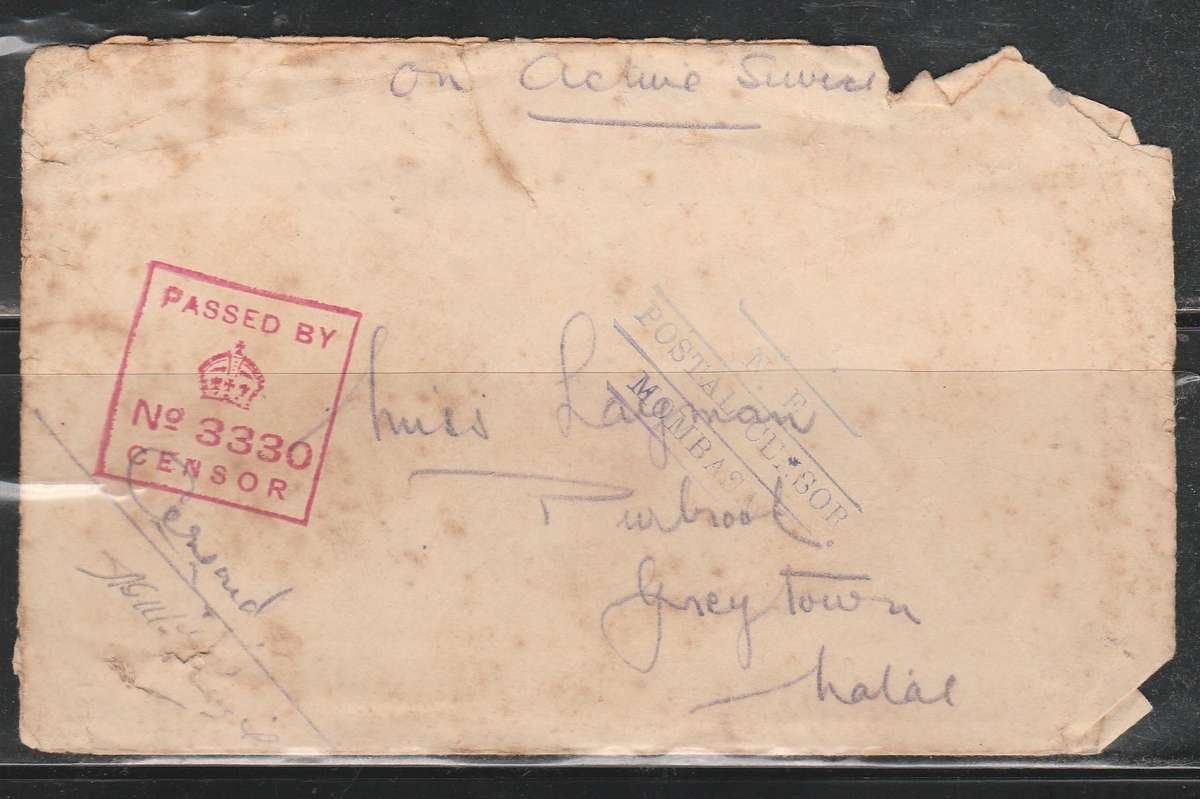 On Active Service
PASSED BY
No 3330
CENSOR
N. E.
POSTAL CENSOR
MOMBASA
Miss Layman
Purbrook.
Greytown
Natal
Censored